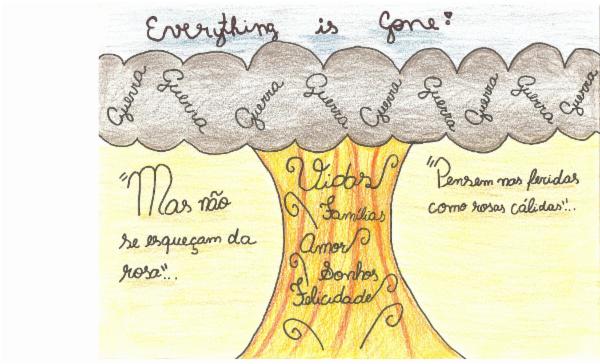 Everything is Gone!
Guerra Guerra Guerra Guerra Guerra Guerra Guerra Guerra Guerra
"Mas não
se esqueçam da
rosa"...
Vidas
Famílias
Amor
Sonhos
Felicidade
"Pensem nas feridas
como rosas cálidas"...